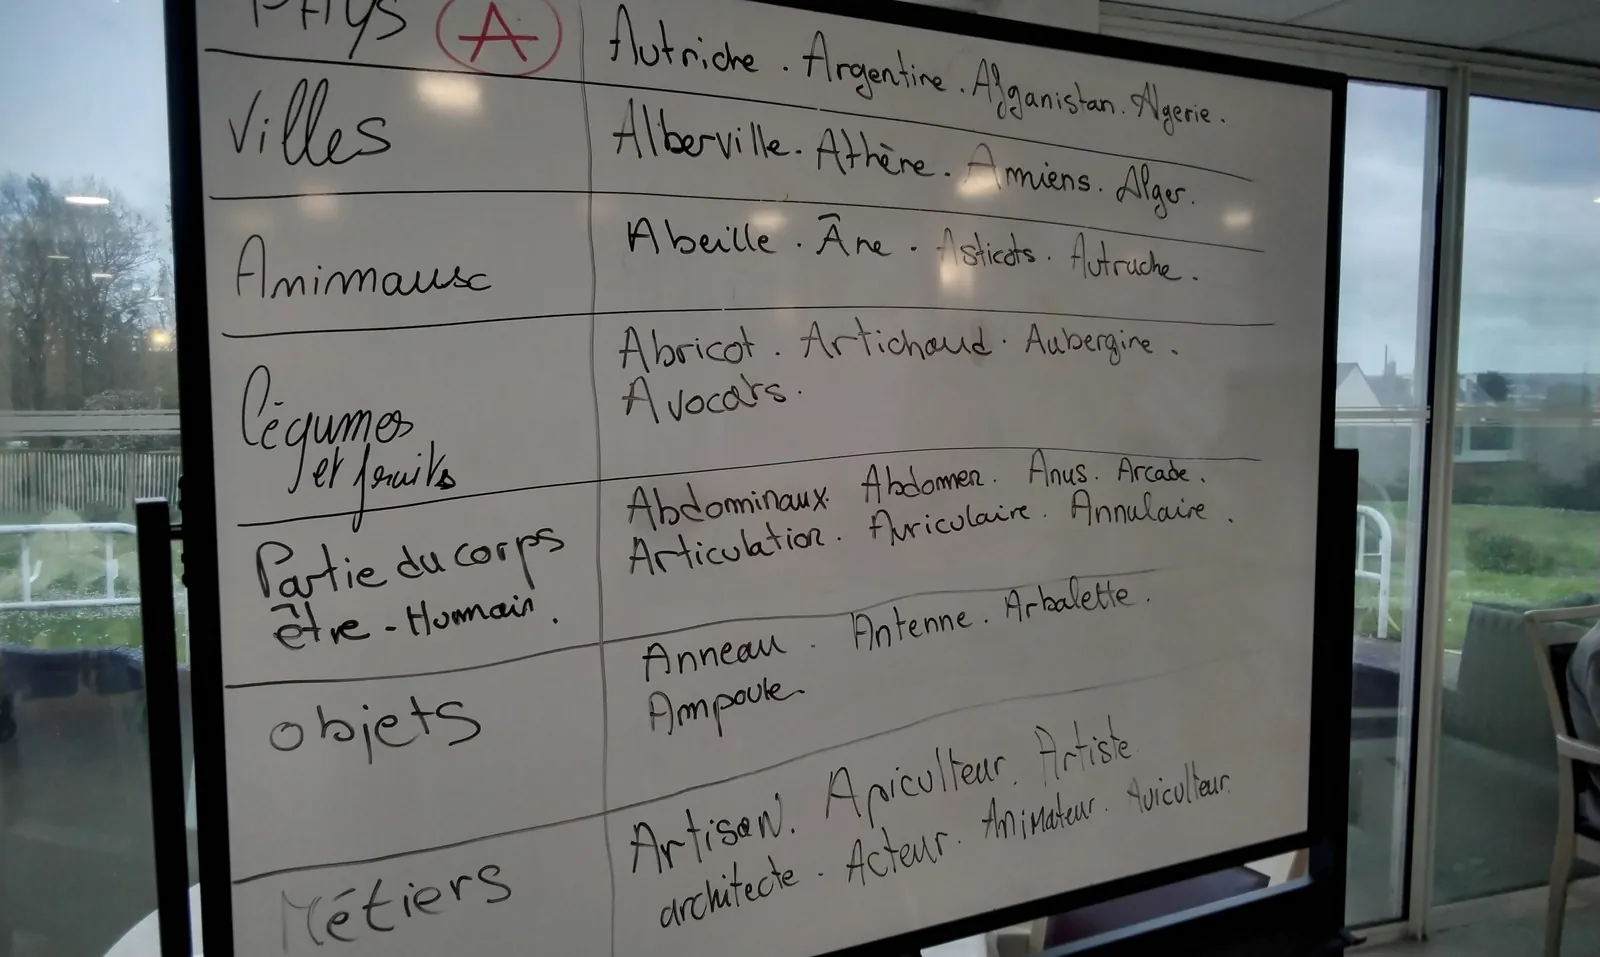 PAYS A Autriche . Argentine . Afganistan . Algerie .
Villes Alberville . Athène . Amiens . Alger .
Animaux Abeille . Âne . Asticots . Autruche .
Légumes Abricot . Artichaud . Aubergine .
et fruits Avocats .
Partie du corps Abdominaux . Abdomen . Anus . Arcade .
être - Humain . Articulation . Auriculaire . Annulaire .
objets Anneau . Antenne . Arbalette .
Ampoule .
Métiers Artisan . Apiculteur . Artiste
architecte . Acteur . Animateur . Aviculteur .